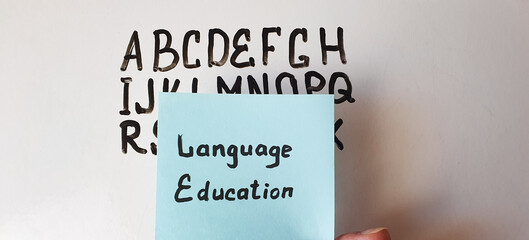 ABCDEFGH
IJKLMNOPQ
Language
Education